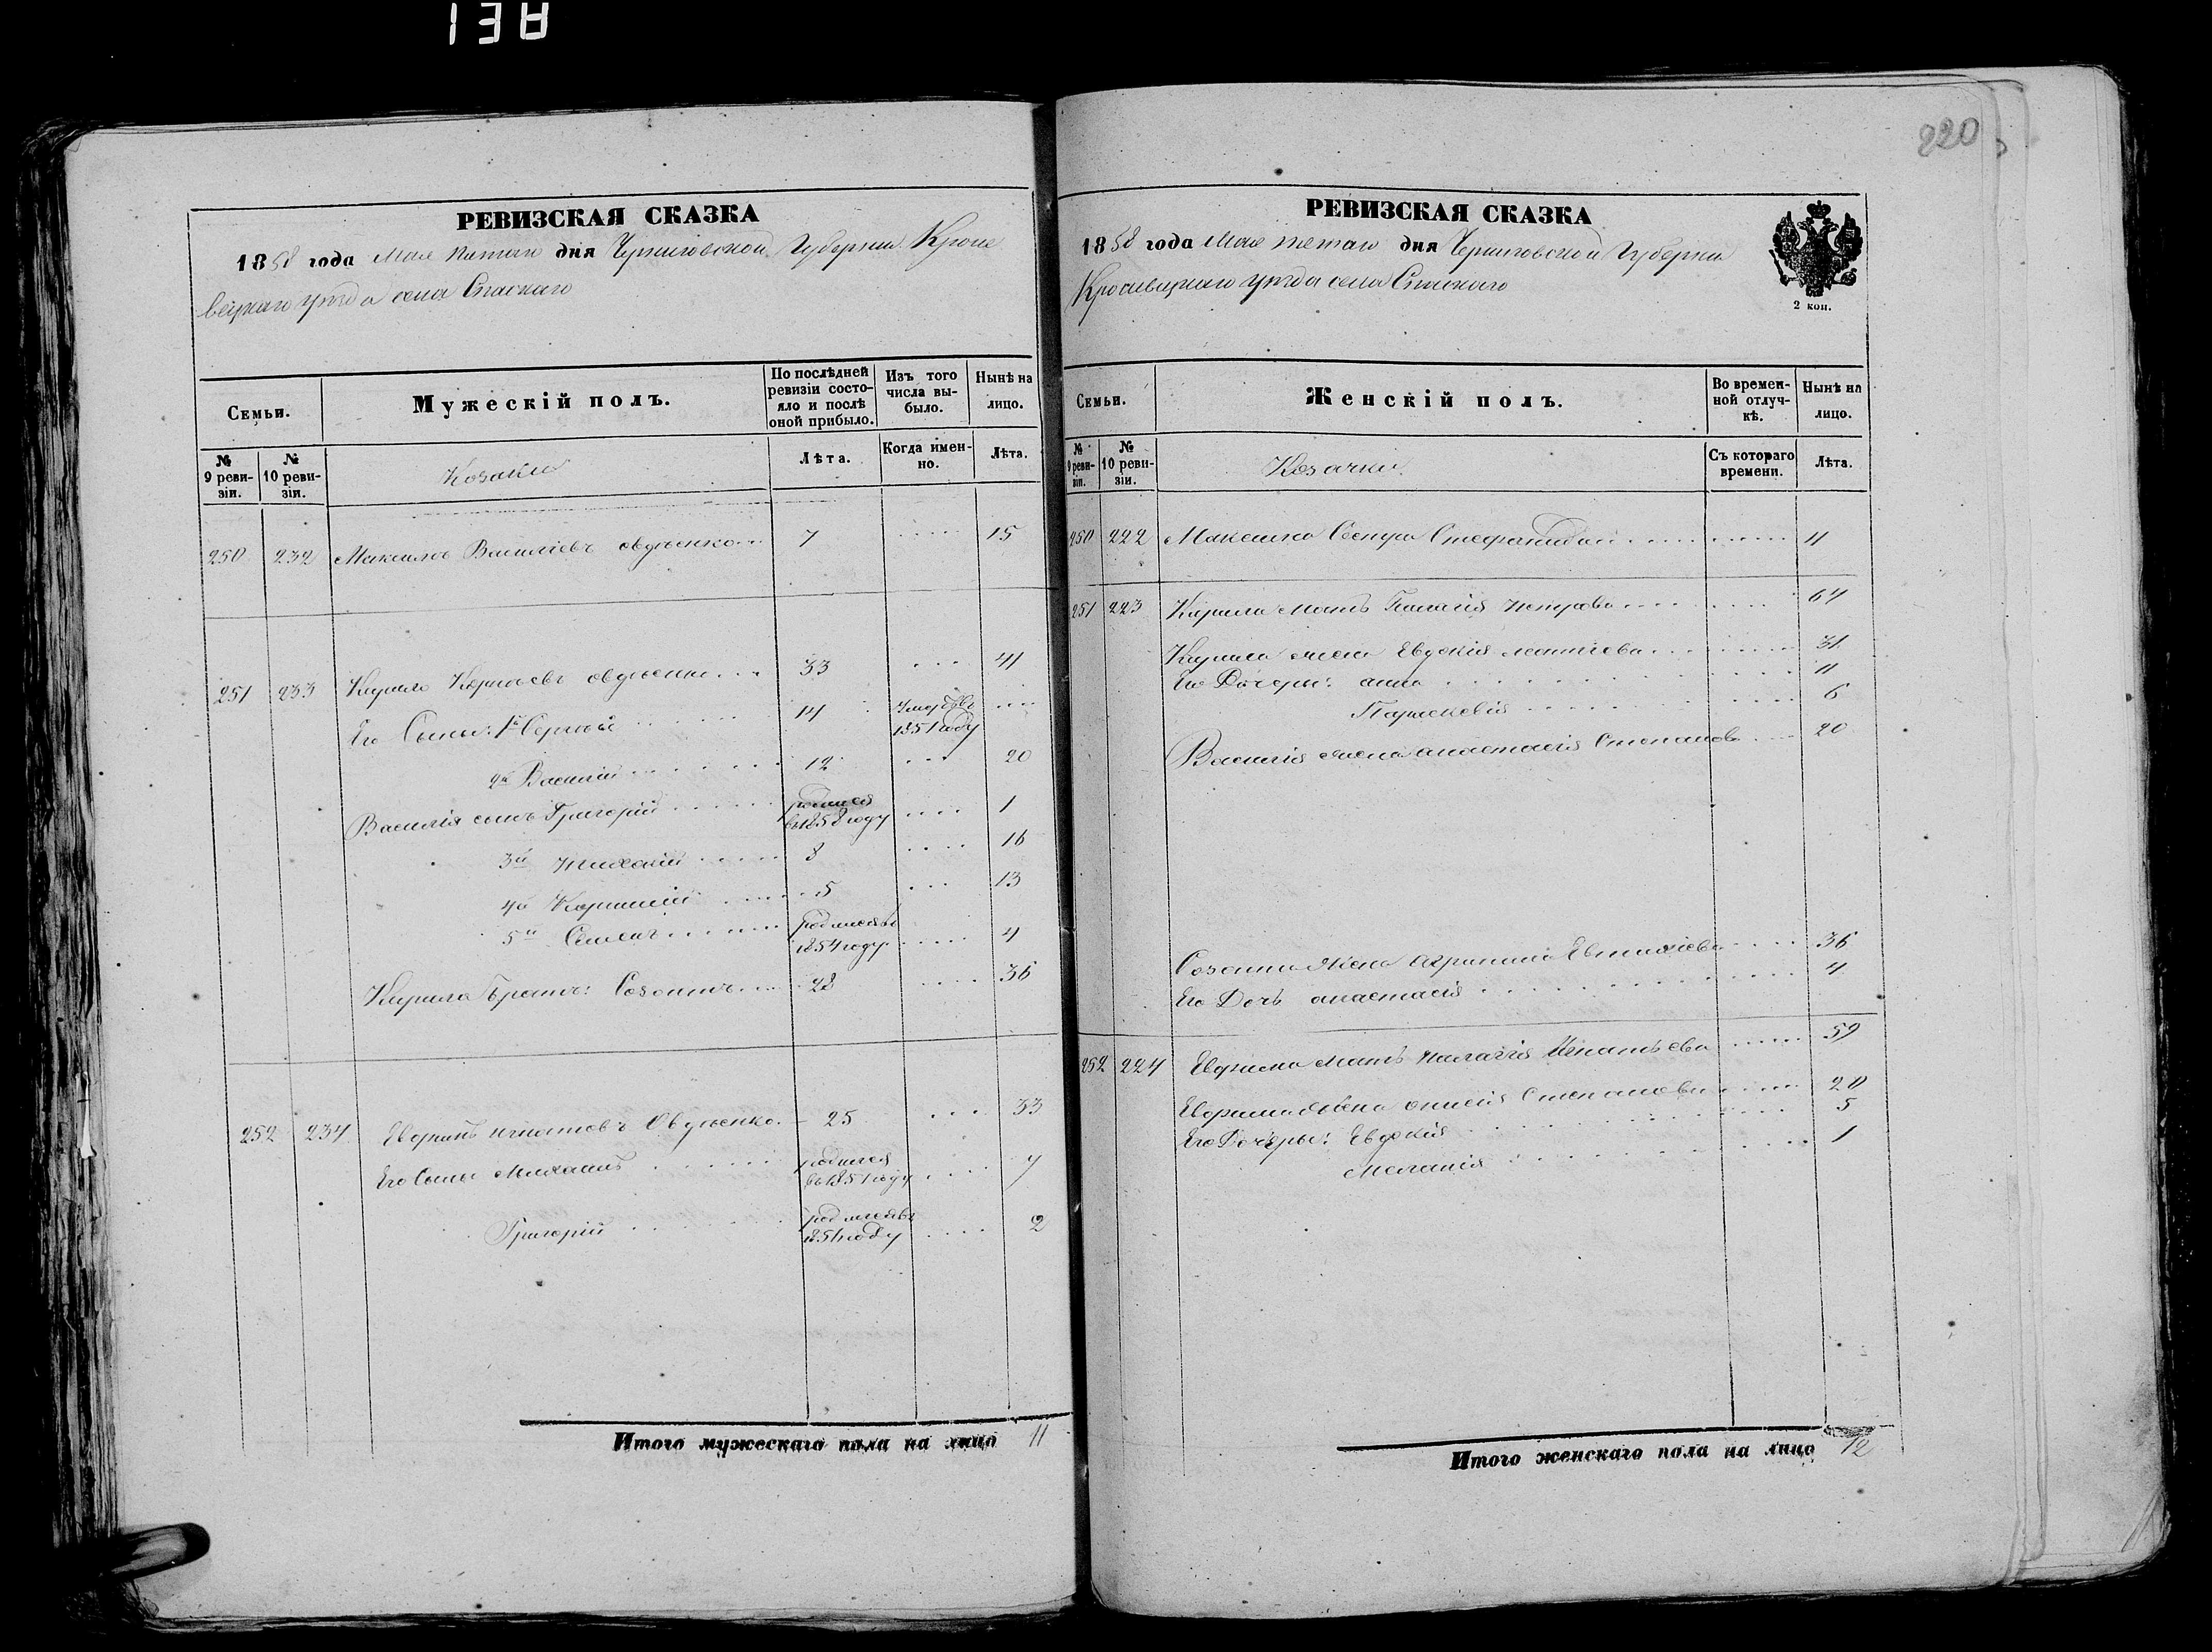 138
220
РЕВИЗСКАЯ СКАЗКА
1858 года Мая пятаго дня Черниговской Губернии Кроле
вецкаго уезда села Спаскаго
Семьи.
Мужескій полъ.
По послѣдней ревизіи состояло и послѣ оной прибыло.
Изъ того числа выбыло.
Нынѣ на лицо.
№ 9 ревизіи.
№ 10 ревизіи.
Козаки
Лѣта.
Когда именно.
Лѣта.
250 232 Максимъ Василіевъ овдѣенко 7 15
251 233 Кирило Корнѣевъ овдѣенко 33 41
Его Сыны: 1й Сергѣй 14 умеръ въ 1851 году
2й Василій 12 20
Василія сынъ Григорій родился въ 1858 году 1
3й 8 16
4й 5 13
5й Семенъ родился въ 1854 году 4
Кирила Братъ: Созонтъ 28 36
252 234 Овдѣенко 25 33
Его Сыны Михаилъ родился въ 1851 году 7
Григорій родился въ году 2
Итого мужескаго пола на лицо 11
РЕВИЗСКАЯ СКАЗКА
1858 года Мая пятаго дня Черниговской Губернии
Кролевецкаго уезда села Спаскаго
2 коп.
Семьи.
Женскій полъ.
Во временной отлучкѣ.
Нынѣ на лицо.
№ 9 ревизіи.
№ 10 ревизіи.
Козачки
Съ котораго времени.
Лѣта.
250 222 Максима Сестра Стефанида 11
251 223 Кирила мать Палагія Петрова 64
Кирила жена Евдокія матвіева 31
Его Дочеры: анна 11
Параскевія 6
Василія жена анастасія Степанова 20
Созонта Жена Агрипина Евтихіева 36
Его Дочь анастасія 4
252 224 мать палагія Игнатьева 59
жена Степановна 20
Его Дочеры: Евдокія 5
Меланія 1
Итого женскаго пола на лицо 12